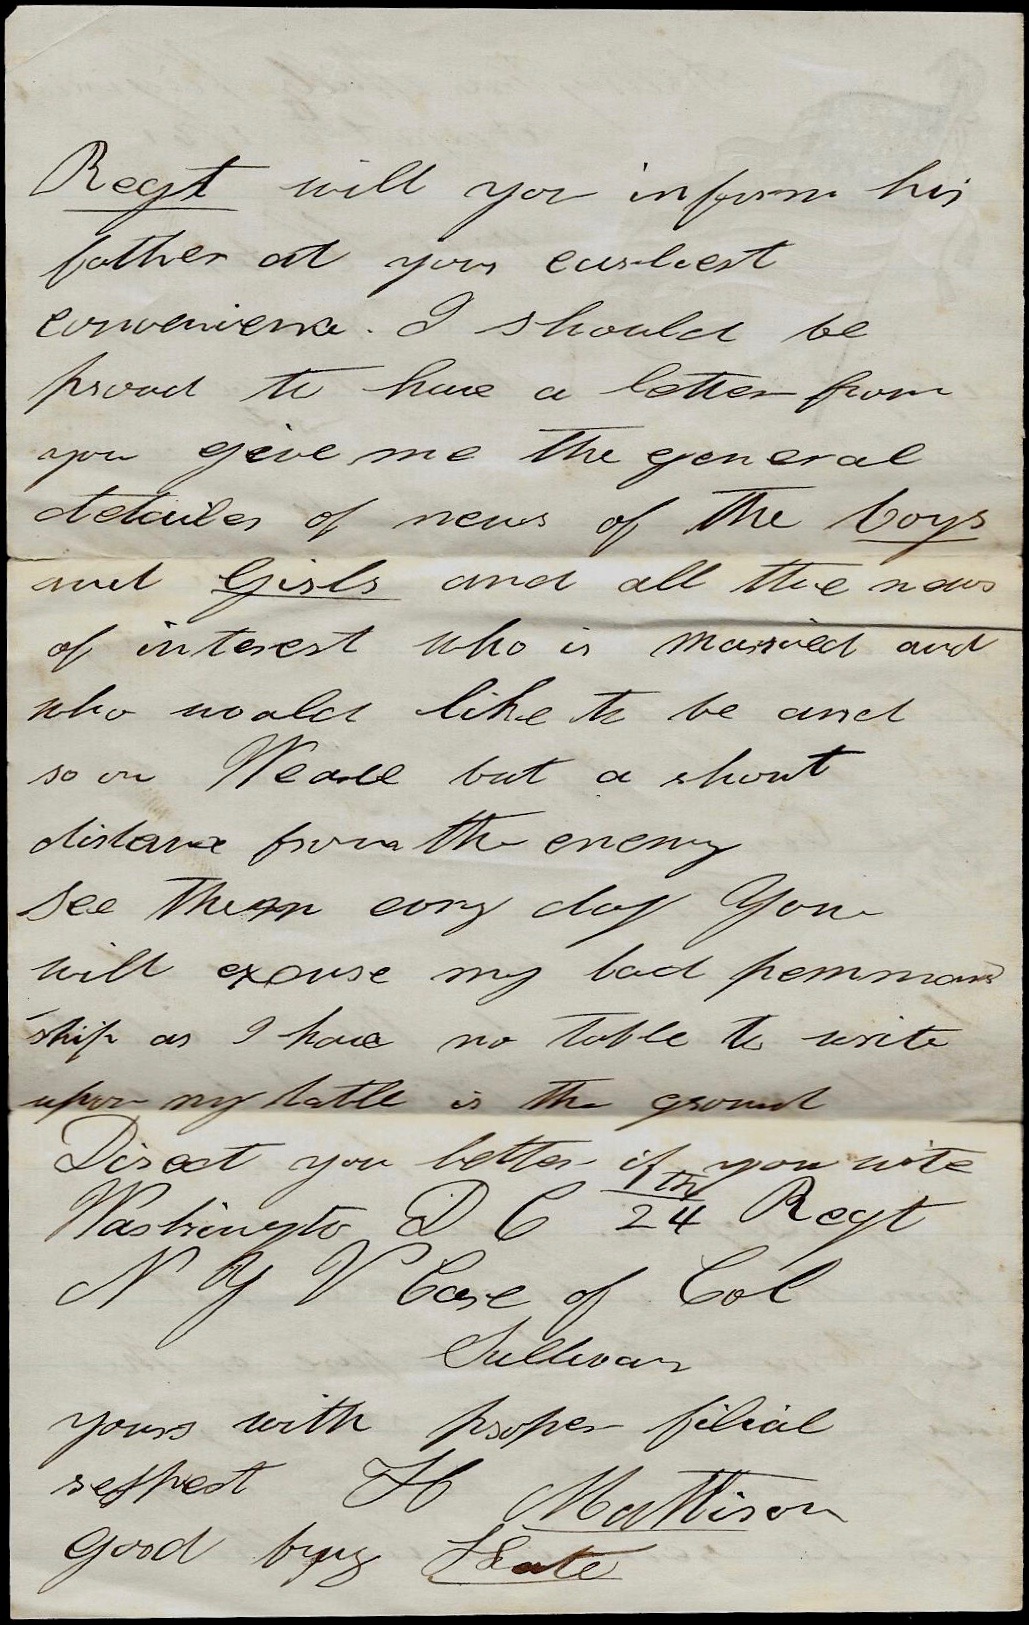 Regt will you inform his
father at your earliest
convenience. I should be
proud to have a letter from
you give me the general
detailes of news of the boys
and Girls and all the news
of interest who is married and
who would like to be and
so on We are but a short
distance from the enemy
see them evry day You
will excuse my bad penman
ship as I have no table to write
upon my table is the ground
Direct you letter if you write
Washington D C 24th Regt
N Y V Care of Col
Sullivan
yours with proper filial
respect H Mattison
good byy